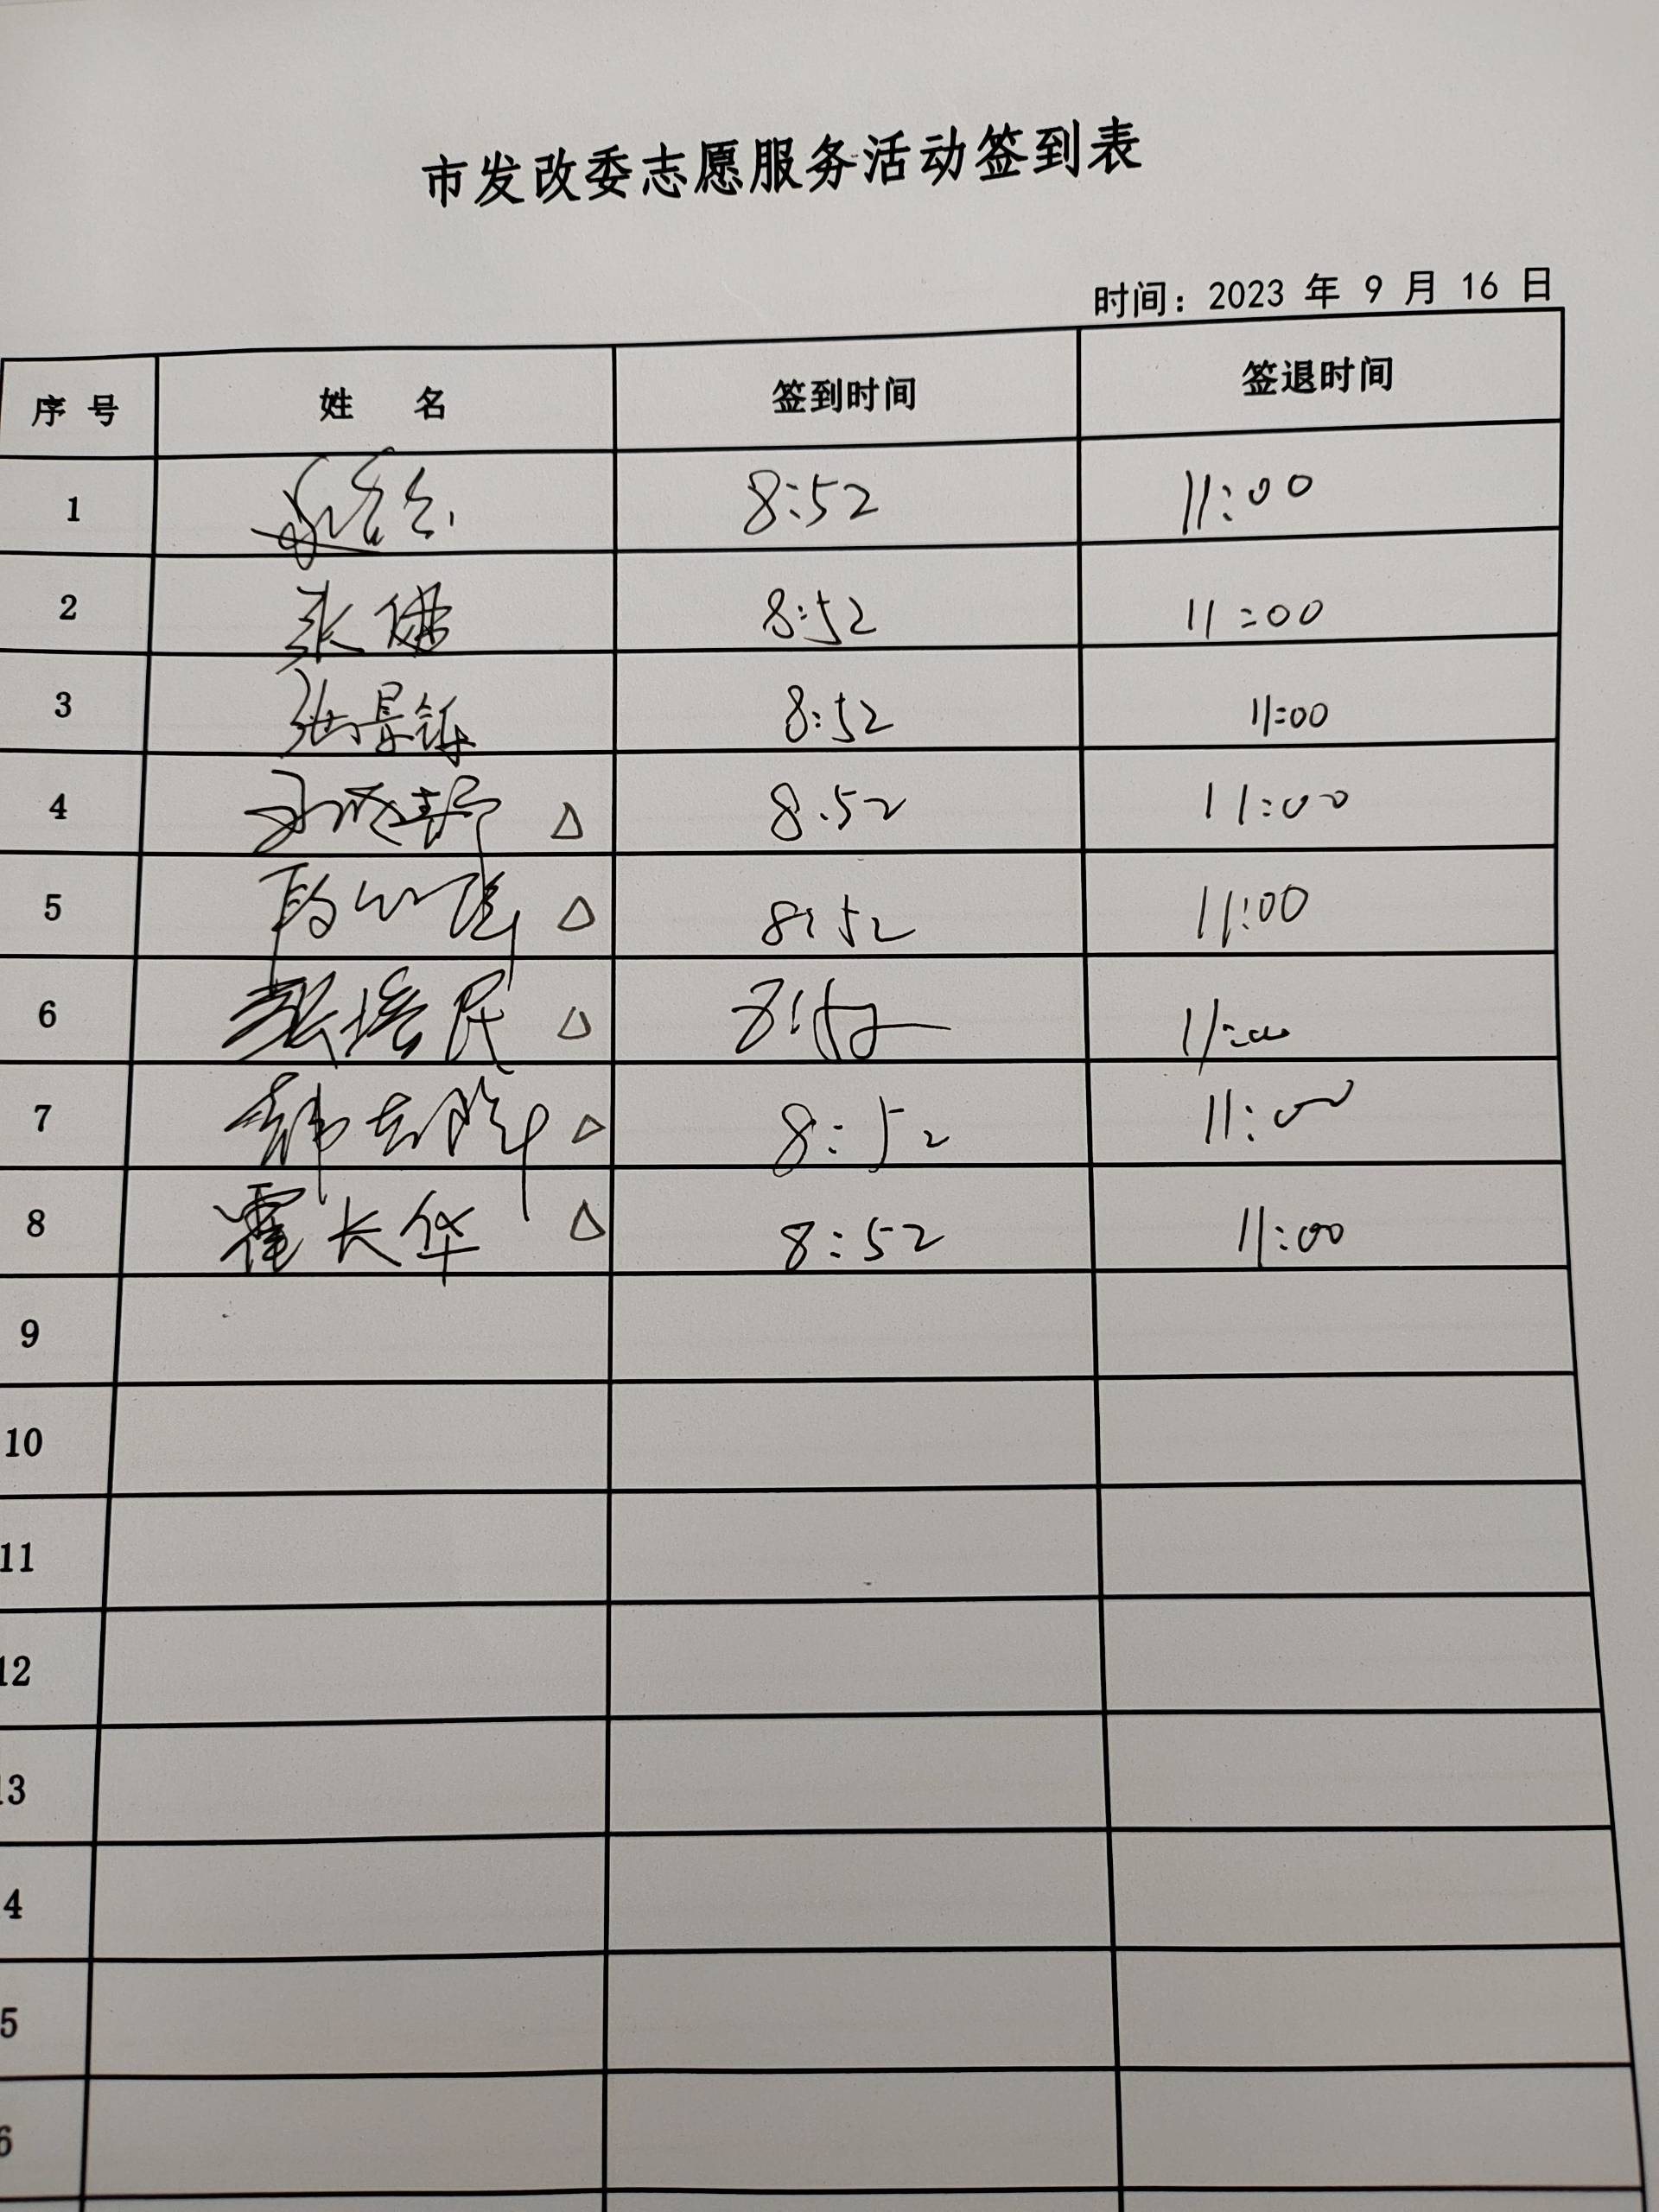 市发改委志愿服务活动签到表
时间：2023 年 9 月 16 日
序 号 姓 名 签到时间 签退时间
1 8:52 11:00
2 8:52 11:00
3 张景铄 8:52 11:00
4 △ 8.52 11:00
5 △ 8:52 11:00
6 培民 △ 8:52 11:00
7 韩志 △ 8:52 11:00
8 霍长华 △ 8:52 11:00
9
10
11
12
13
4
5
6